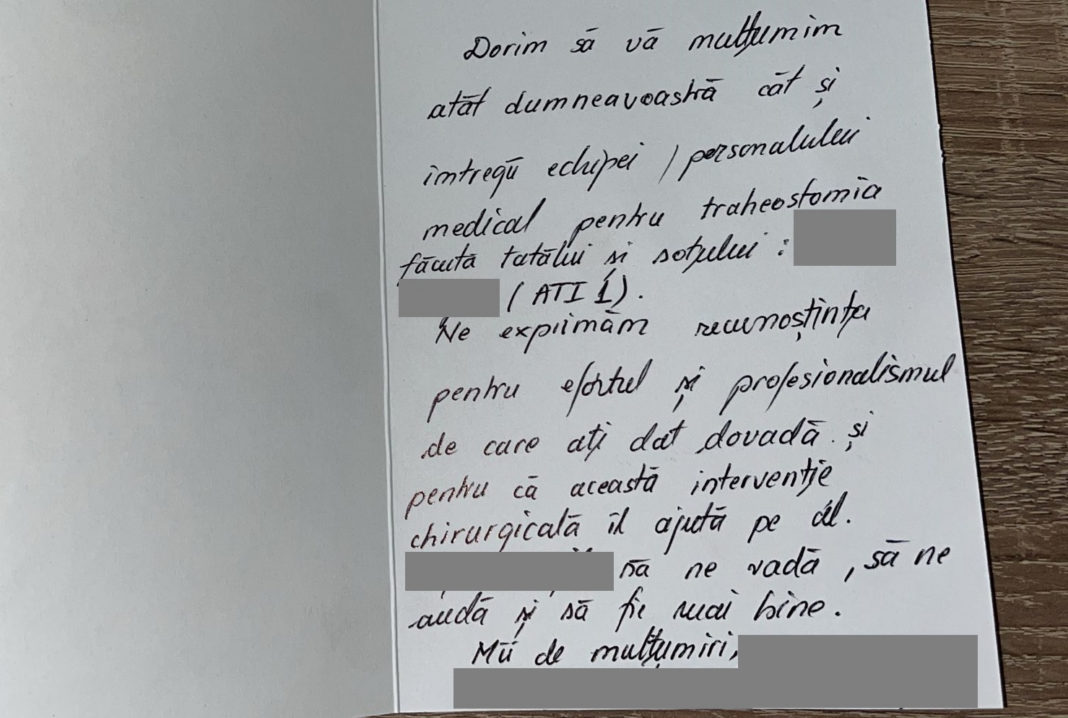 Dorim să vă mulțumim
atât dumneavoastră cât și
întregii echipei / personalului
medical pentru traheostomia
făcută tatălui și soțului :
( ATI 1 ).
Ne exprimăm recunoștința
pentru efortul și profesionalismul
de care ați dat dovadă și
pentru că această intervenție
chirurgicală îl ajută pe dl.
să ne vadă , să ne
audă și să fie mai bine .
Mii de mulțumiri,